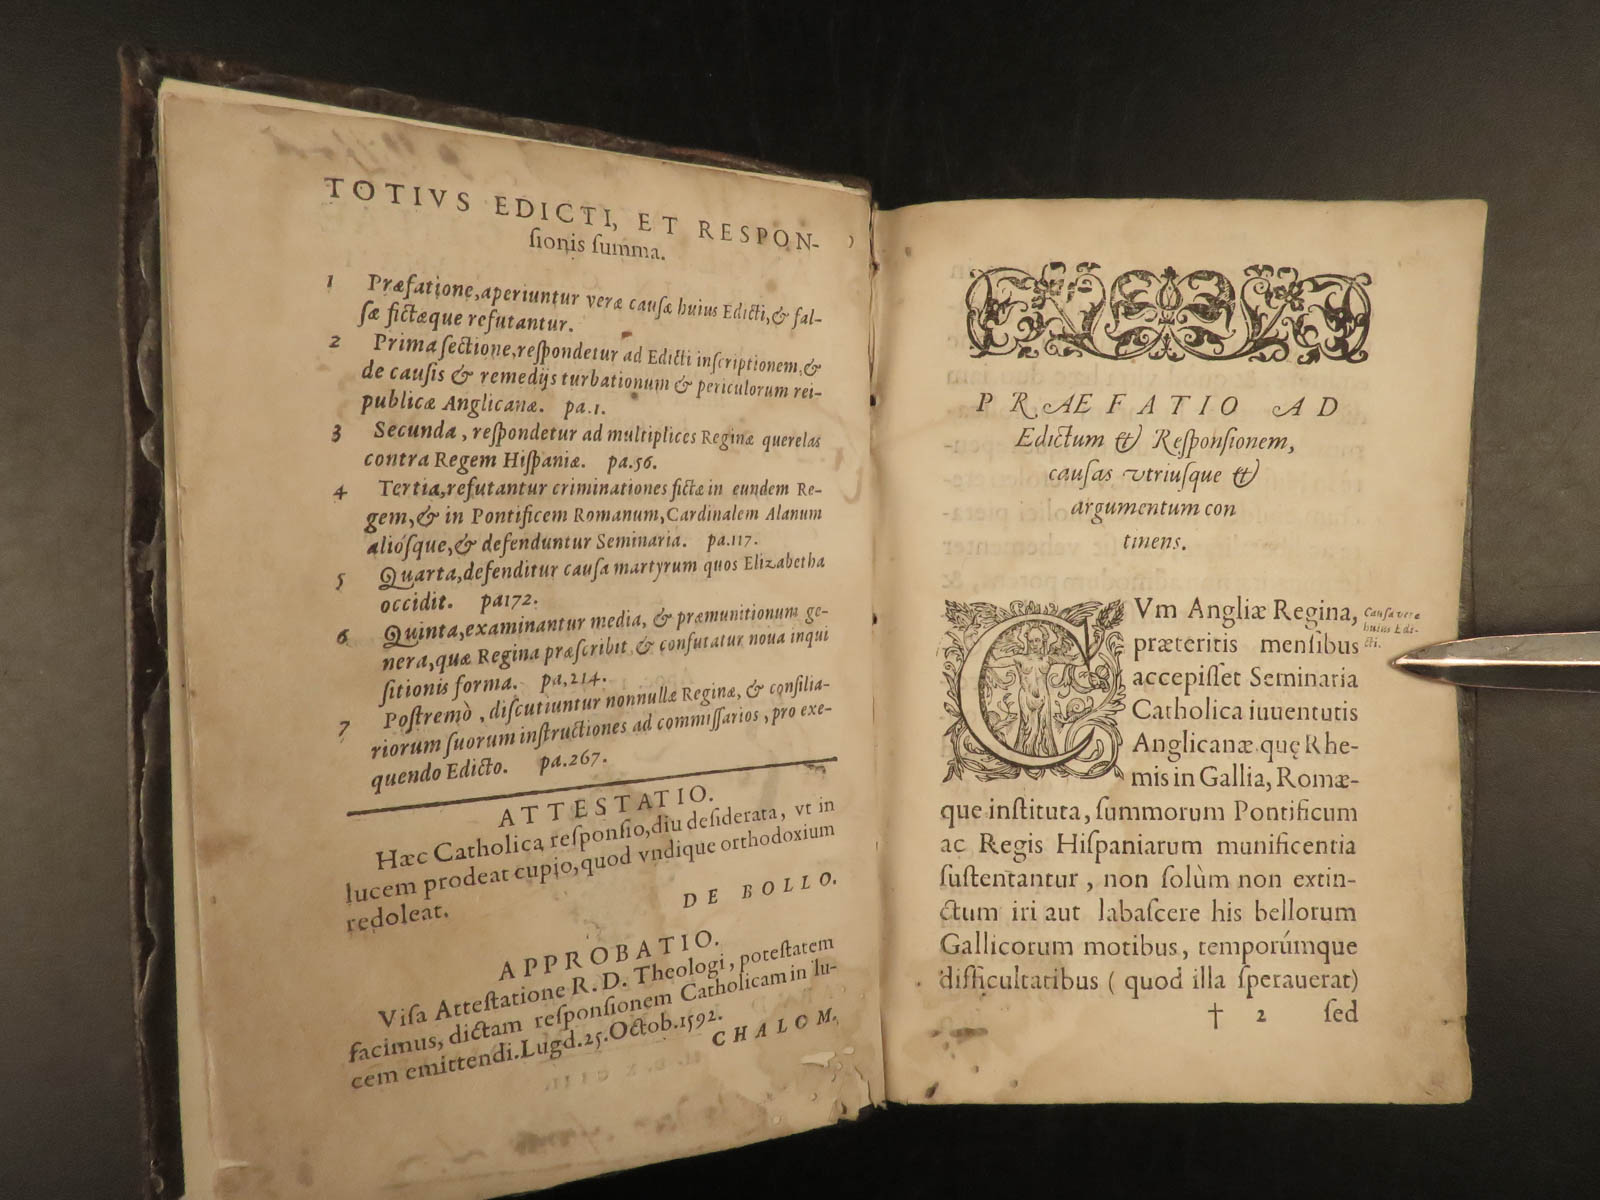 TOTIVS EDICTI, ET RESPON-
ſionis ſumma.
1 Præfatione, aperiuntur veræ cauſæ huius Edicti, & fal-
ſæ fictæque refutantur.
2 Prima ſectione, reſpondetur ad Edicti inſcriptionem, &
de cauſis & remedijs turbationum & periculorum rei-
publicæ Anglicanæ. pa.1.
3 Secunda, reſpondetur ad multiplices Reginæ querelas
contra Regem Hiſpaniæ. pa.56.
4 Tertia, refutantur criminationes fictæ in eundem Re-
gem, & in Pontificem Romanum, Cardinalem Alanum
alióſque, & defenduntur Seminaria. pa.117.
5 Quarta, defenditur cauſa martyrum quos Elizabetha
occidit. pa172.
6 Quinta, examinantur media, & præmunitionum ge-
nera, quæ Regina præſcribit, & confutatur noua inqui
ſitionis forma. pa,214.
7 Poſtremò, diſcutiuntur nonnullæ Reginæ, & conſilia-
riorum ſuorum inſtructiones ad commiſſarios, pro exe-
quendo Edicto. pa.267.
ATTESTATIO.
Hæc Catholica reſponſio, diu deſiderata, vt in
lucem prodeat cupio, quod vndique orthodoxium
redoleat.
DE BOLLO.
APPROBATIO.
Viſa Atteſtatione R. D. Theologi, poteſtatem
facimus, dictam reſponſionem Catholicam in lu-
cem emittendi. Lugd. 25. Octob. 1592.
CHALOM.
PRÆFATIO AD
Edictum & Reſponſionem,
cauſas vtriuſque &
argumentum con
tinens.
CVm Angliæ Regina,
præteritis menſibus
accepiſſet Seminaria
Catholica iuuentutis
Anglicanæ quę Rhe-
mis in Gallia, Romæ-
que inſtituta, ſummorum Pontificum
ac Regis Hiſpaniarum munificentia
ſuſtentantur, non ſolùm non extin-
ctum iri aut labaſcere his bellorum
Gallicorum motibus, temporúmque
difficultatibus (quod illa ſperauerat)
† 2 ſed
Cauſa veræ
huius Edi-
cti.